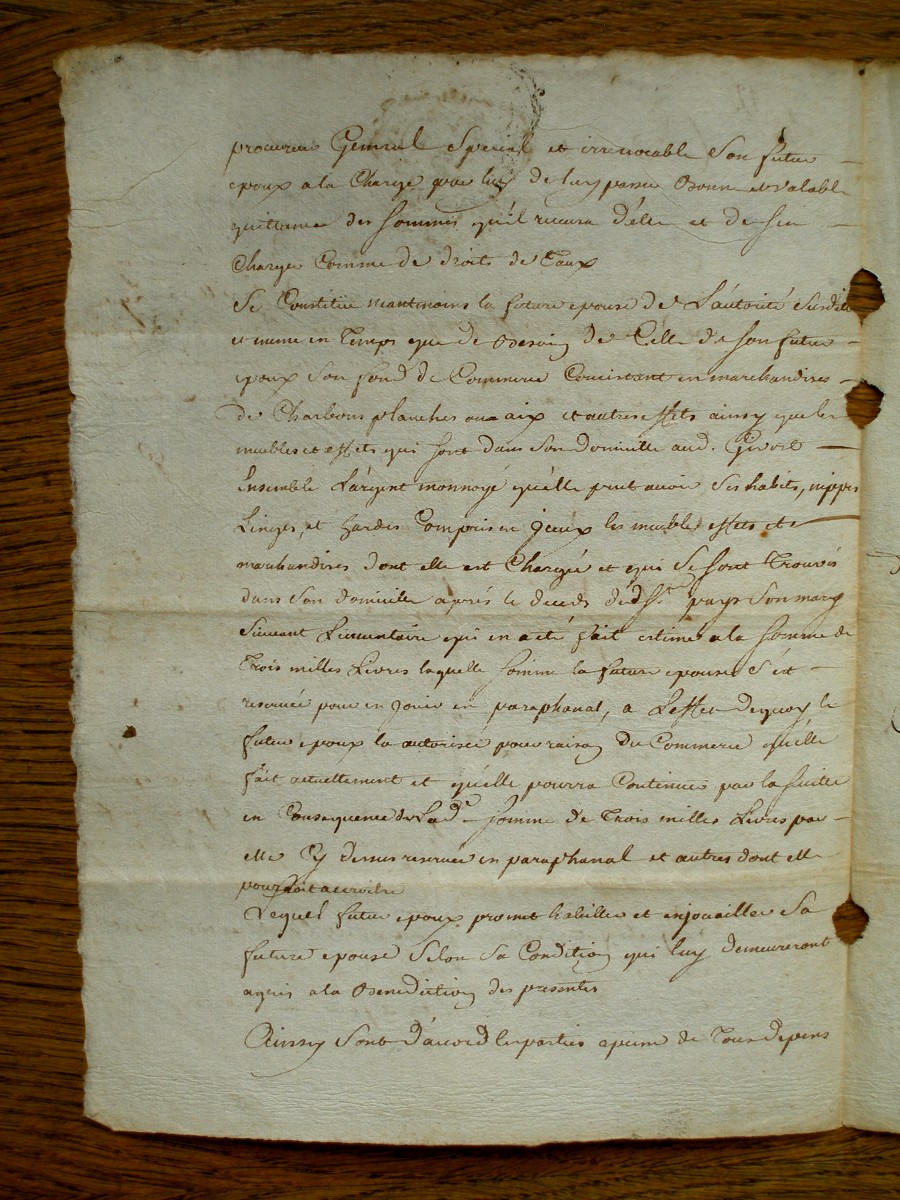 procureur General Special et irrevocable Son futur
epoux a la Charge par luy de luy passer bonne et valable
quittance des Sommes qu'il recevra d'elle et de Sa
Charge Comme de droits de Taux
Se Constitüe neantmoins la future epouse de L'autorité Susditte
et meme en Temps que de besoin de Celle de Son futur
epoux Son fond de Commerce Concistant en marchandises
de Charbons planches aix et autres effets ainsy que les
meubles et effets qui Sont dans Son Domicille aud. Givort
Ensemble L'argent monnoyé qu'elle peut avoir Ses habits, nippes
Linges, et hardes Compris en Yceux les meubles effets et
marchandises dont elle est Chargée et qui Se Sont Trouvés
dans Son domicille aprés le deceds dud. Sr. pays Son mary
Suivant L'inventaire qui en a eté fait estimés a la Somme de
Trois milles Livres laquelle Somme la future epouse S'est
reservée pour en Jouir en paraphanal, a L'effet de quoy le
futur epoux la autorisée pour raison du Commerce qu'elle
fait actuellement et qu'elle pourra Continuer par la Suitte
en Consequence de Lad.e Somme de Trois milles Livres par
elle Cy dessus reservée en paraphanal et autres dont elle
pourroit accroitre
Lequel futur epoux promet habiller et enjouailler Sa
future epouse Selon Sa Condition qui luy demeureront
aquis a la Benediction des presentes
Ainsy Sont d'acord les parties a peine de Tous depens